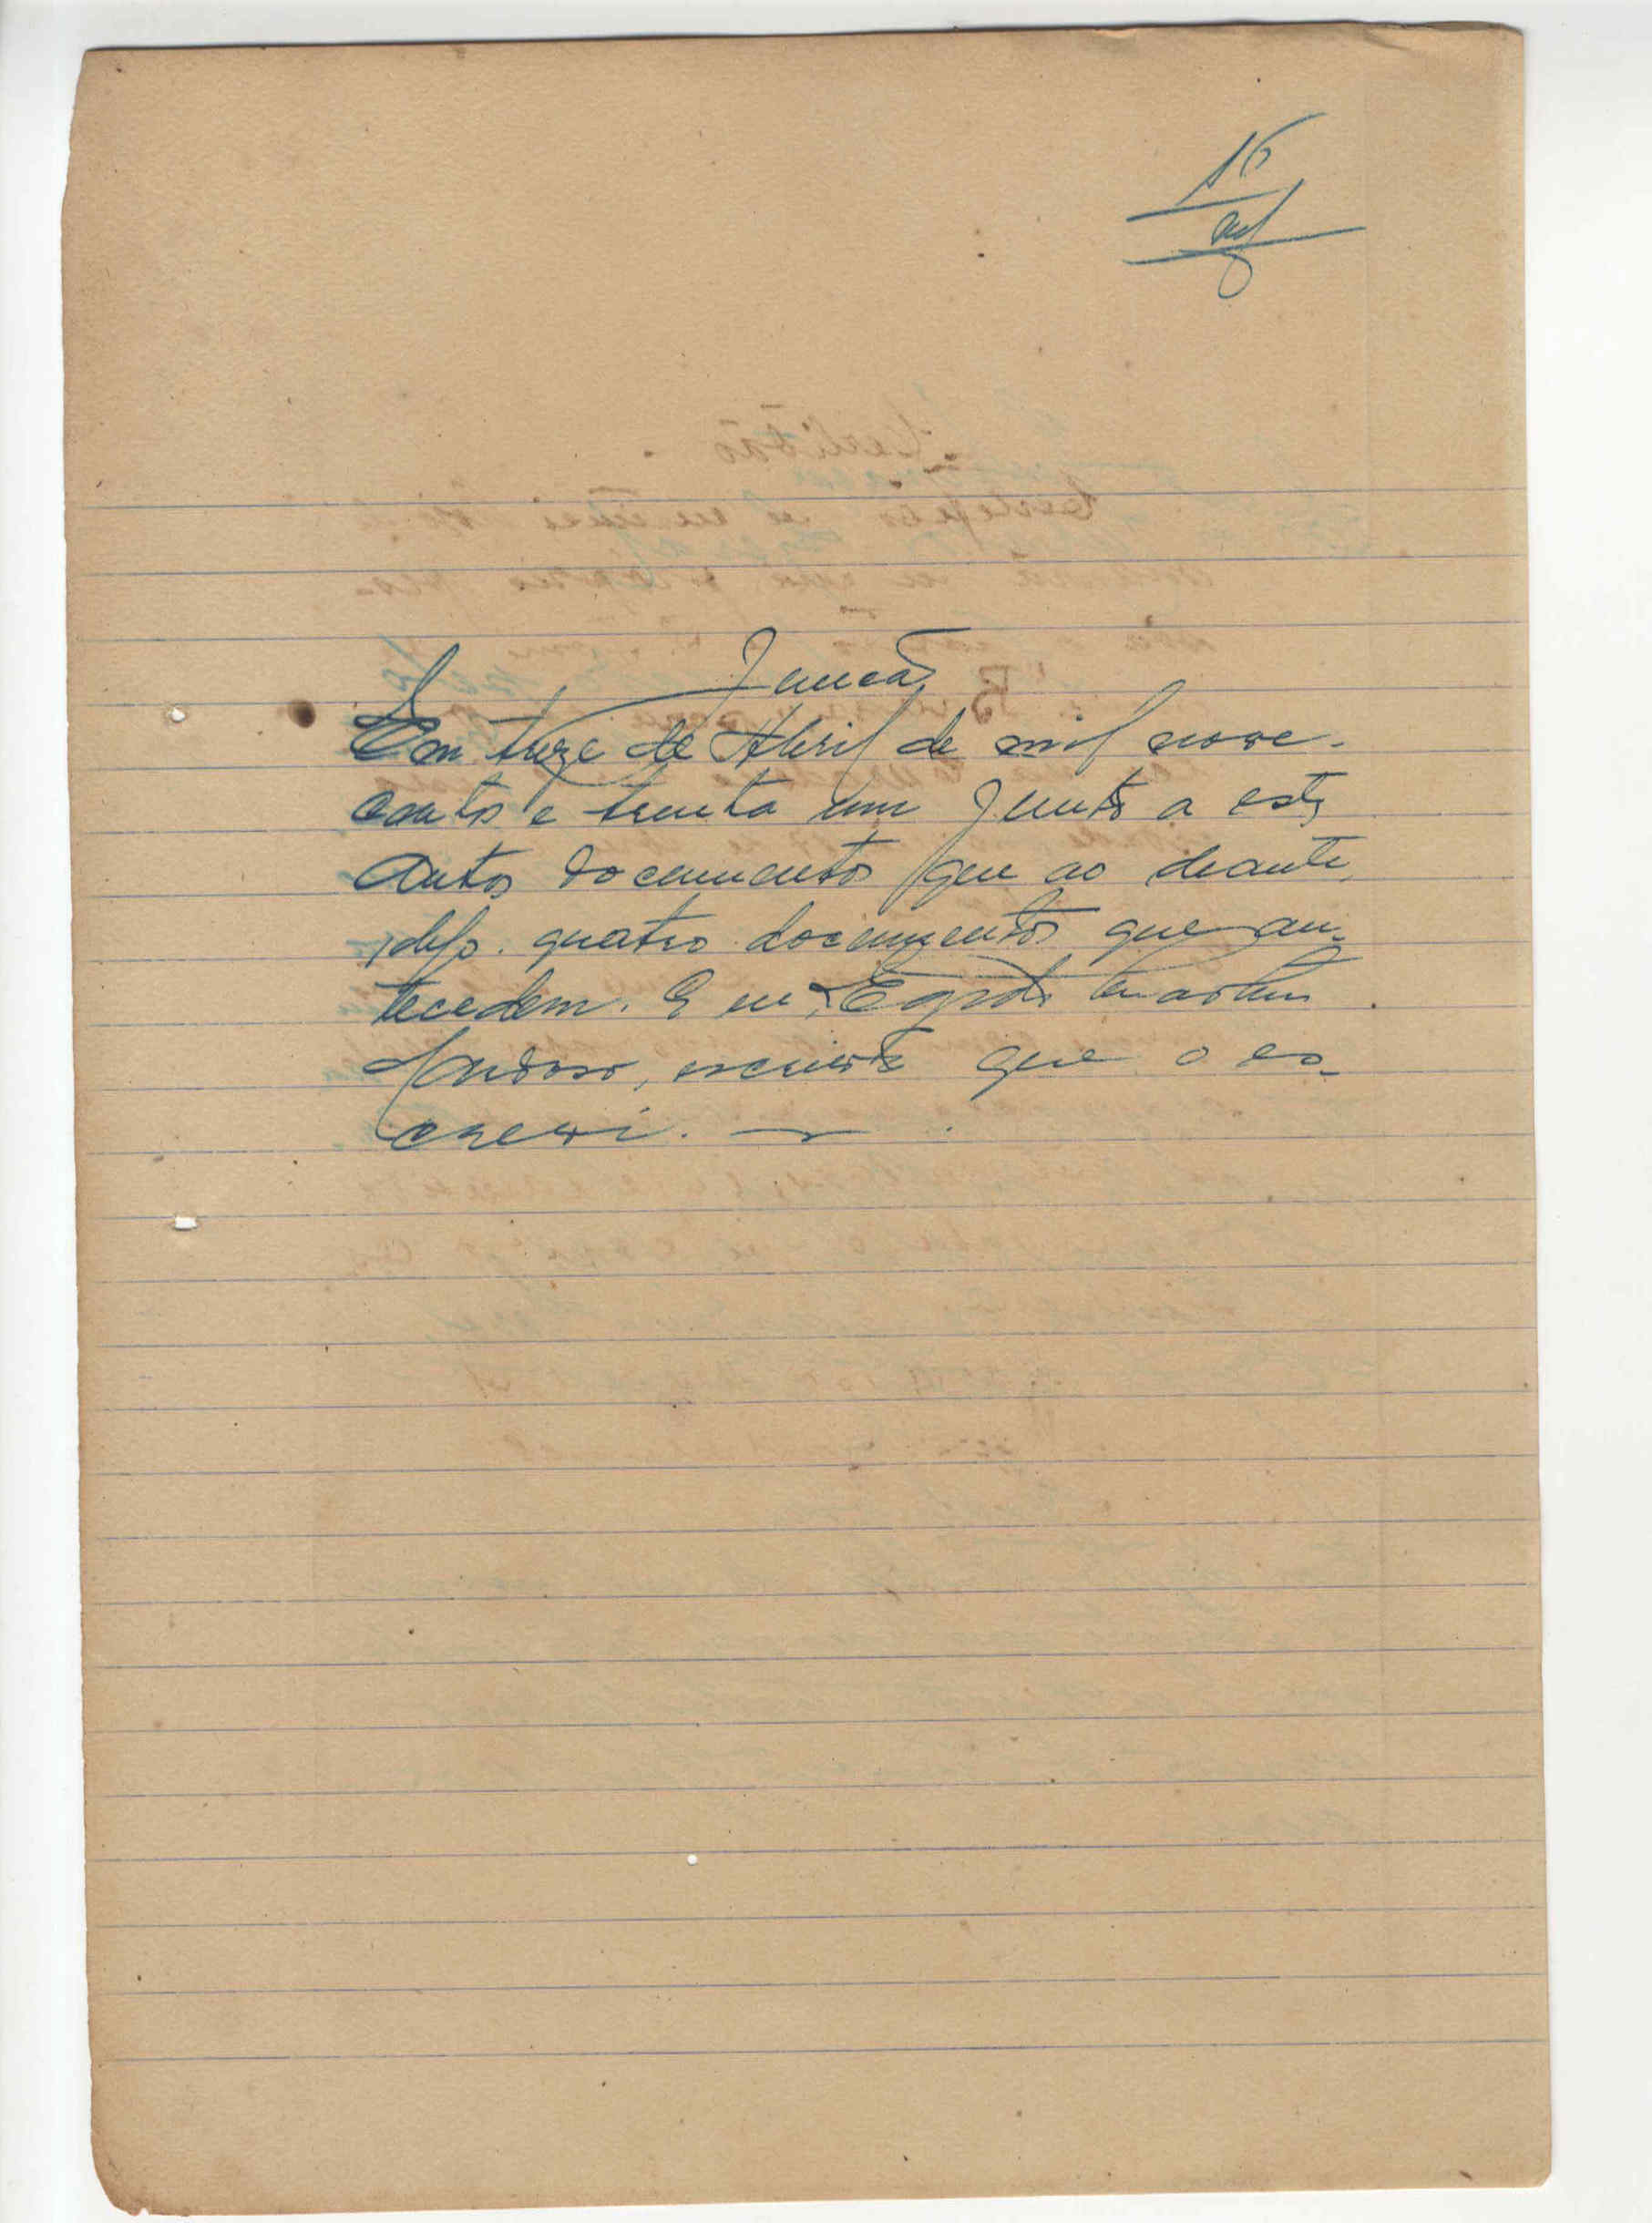 16
Juncão
Em treze de Abril de mil nove-
centos e trinta um junto a estes
autos documentos que ao deante,
digo. quatro documentos que an-
tecedem. E eu, Martins
Cardoso, escrivão que o es-
crevi.